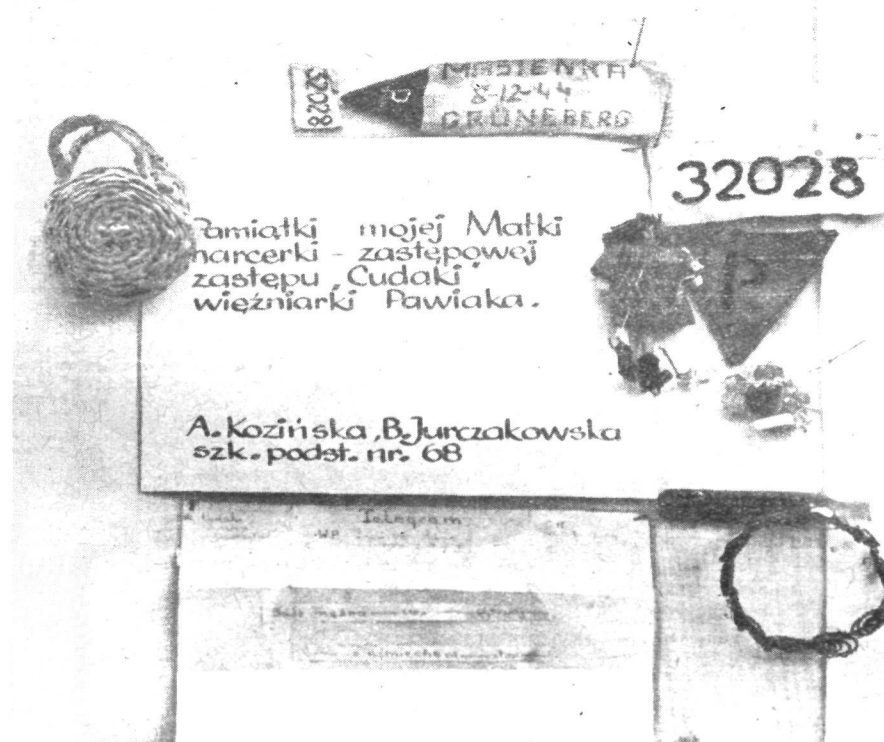 32028
P
MADZIEŃKA
8-12-44
GRÜNEBERG
32028
P
Pamiątki mojej Matki
harcerki - zastępowej
zastępu „Cudaki"
więźniarki Pawiaka.
A. Kozińska, B. Jurczakowska
szk. podst. nr. 68
Telegram